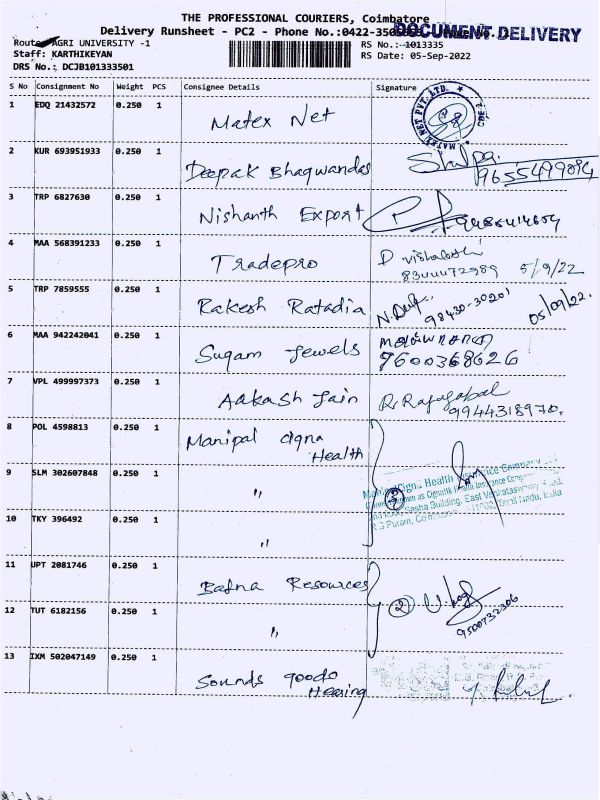 THE PROFESSIONAL COURIERS, Coimbatore
Delivery Runsheet - PC2 - Phone No.:0422-
DOCUMENT DELIVERY
Route: AGRI UNIVERSITY -1
RS No.: 1013335
Staff: KARTHIKEYAN
RS Date: 05-Sep-2022
DRS No.: DCJB101333501
S No Consignment No Weight PCS Consignee Details Signature
1 EDQ 21432572 0.250 1 Matex Net
2 KUR 693951933 0.250 1 Deepak Bhagwandas Shilpa. 9655499094
3 TRP 6827630 0.250 1 Nishanth Export
4 MAA 568391233 0.250 1 Tradepro D vishalakshi
8344472989 5/9/22
5 TRP 7859555 0.250 1 Rakesh Ratadia 98430-30201 05/09/22.
6 MAA 942242041 0.250 1 Sugam Jewels
9600368626
7 VPL 499997373 0.250 1 Aakash Jain R. Rajagopal
9944318970.
8 POL 4598813 0.250 1 Manipal cigna
Health
9 SLM 302607848 0.250 1 "
③
10 TKY 396492 0.250 1 "
11 UPT 2081746 0.250 1 Bafna Resources
② 9500732306
12 TUT 6182156 0.250 1 "
13 IXM 502047149 0.250 1 Sounds good
Hearing